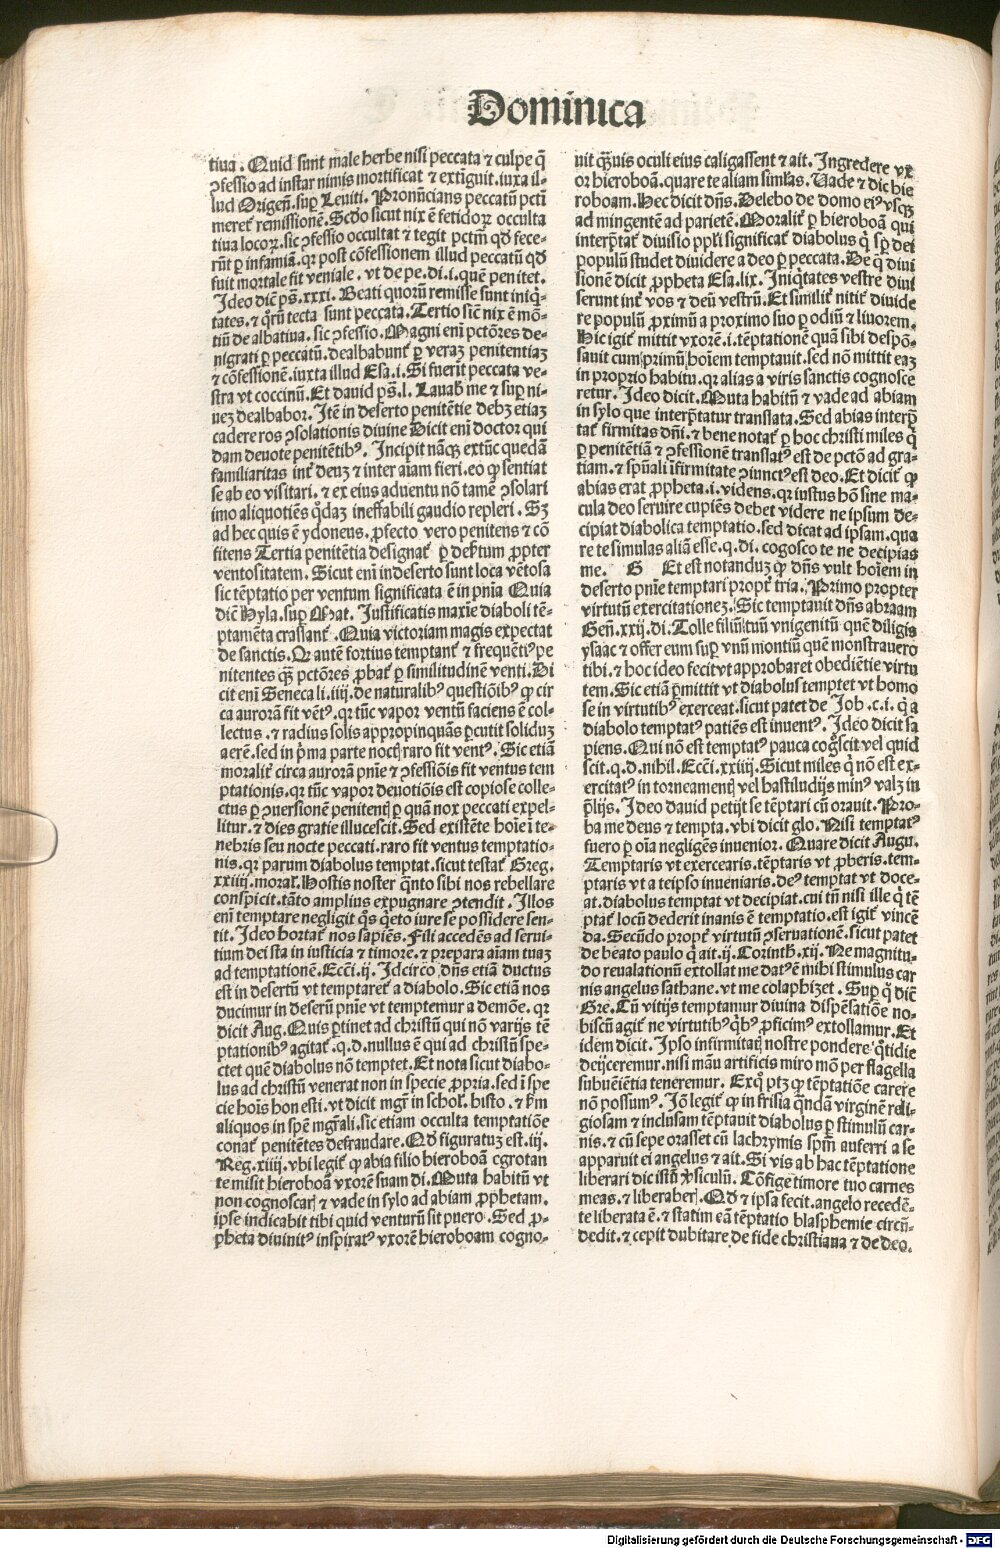 Dominica
tiua. Quid sunt male herbe nisi peccata ⁊ culpe q̄
ꝯfessio ad instar nimis mortificat ⁊ extīguit. iuxa il-
lud Origeñ. suꝑ Leuiti. Pronūcians peccatū pctī
meret᷑ remissionē. Scđo sicut nix ē fetidoꝝ occulta
tiua locoꝝ. sic ꝯfessio occultat ⁊ tegit pctm̄ qđ fece-
rūt ꝑ infamiā. qꝛ post cōfessionem illud peccatū qđ
fuit mortale fit veniale. vt de pe. di. i. quē penitet.
Ideo dic̄ ps̄. xxxi. Beati quorū remisse sunt iniq̇-
tates. ⁊ q̄rū tecta sunt peccata. Tertio sic̄ nix ē mō-
tiū dealbatiua. sic ꝯfessio. Magni eni pctōres de-
nigrati ꝑ peccatū. dealbabunt᷑ ꝑ veraꝫ penitentiaꝫ
⁊ cōfessionē. iuxta illud Esa. i. Si fuerīt peccata ve-
stra vt coccinū. Et dauid ps̄. l. Lauab̄ me ⁊ suꝑ ni-
ueꝫ dealbabor. Itē in deserto penitētie debꝫ etiaꝫ
cadere ros ꝯsolationis diuine Dicit eni doctor qui
dam deuote penitētibꝰ. Incipit nāqꝫ extūc quedā
familiaritas int᷑ deuꝫ ⁊ inter aīam fieri. eo ꝙ sentiat
se ab eo visitari. ⁊ ex eius aduentu nō tamē ꝯsolari
imo aliquotiēs q̇daꝫ ineffabili gaudio repleri. Sꝫ
ad hec quis ē ydoneus. ꝓfecto vero penitens ⁊ cō
fitens Tertia penitētia designat᷑ ꝑ deẜtum ꝓpter
ventositatem. Sicut eni in deserto sunt loca vētosa
sic tēptatio per ventum significata ē in pnīa Quia
dic̄ Hyla. suꝑ Mat. Justificatis maxīe diaboli tē-
ptamēta crassant᷑. Quia victoriam magis expectat
de sanctis. Qꝛ autē fortius temptant᷑ ⁊ frequētiꝰ pe
nitentes qꝫ pctōres ꝓbat᷑ ꝑ similitudinē venti. Di
cit eni Seneca li. iiij. de naturalibꝰ questiōibꝰ ꝙ cir
ca aurorā fit vētꝰ. qꝛ tūc vapor ventū faciens ē col-
lectus. ⁊ radius solis appropinquās ꝑcutit soliduꝫ
aerē. sed in pͥma parte noctꝭ raro fit ventꝰ. Sic etiā
moralit᷑ circa aurorā pnīe ⁊ ꝯfessiōis fit ventus tem
ptationis. qꝛ tūc vapor deuotiōis est copiose colle-
ctus ꝑ ꝯuersionē penitentꝭ ꝑ quā nox peccati expel-
litur. ⁊ dies gratie illucescit. Sed existēte hoīe ī te-
nebris seu nocte peccati. raro fit ventus temptatio-
nis. qꝛ parum diabolus temptat. sicut testat᷑ Greg.
xxiiij. moral. Hostis noster q̄nto sibi nos rebellare
conspicit. tāto amplius expugnare ꝯtendit. Illos
eni temptare negligit q̄s q̇eto iure se possidere sen-
tit. Ideo hortat᷑ nos sapiēs. Fili accedēs ad serui-
tium dei sta in iusticia ⁊ timore. ⁊ prepara aīam tuaꝫ
ad temptationē. Ecci. ij. Idcirco dn̄s etiā ductus
est in desertū vt temptaret᷑ a diabolo. Sic etiā nos
ducimur in desertū pnīe vt temptemur a demōe. qꝛ
dicit Aug. Quis ꝑtinet ad christū qui nō varijs tē
ptationibꝰ agitat᷑. q. d. nullus ē qui ad christū spe-
ctet quē diabolus nō temptet. Et nota sicut diabo-
lus ad christū venerat non in specie ꝓpria. sed ī spe
cie hoīs honesti. vt dicit mgr̄ in schol. histo. ⁊ ẜm
aliquos in spē mgr̄ali. sic etiam occulta temptatiōe
conat᷑ penitētes defraudare. Qđ figuratuꝫ est. iij.
Reg. xiiij. vbi legit᷑ ꝙ abia filio hieroboā egrotan
te misit hieroboā vxorē suam di. Muta habitū vt
non cognoscarꝭ ⁊ vade in sylo ad abiam ꝓphetam.
ipse indicabit tibi quid venturū sit puero. Sed ꝓ-
pheta diuinitꝰ inspiratꝰ vxorē hieroboam cogno-
uit qꝫuis oculi eius caligassent ⁊ ait. Ingredere vx
or hieroboā. quare te aliam simlas. Vade ⁊ dic hie
roboam. Hec dicit dn̄s. Delebo de domo eiꝰ vsqꝫ
ad mingentē ad parietē. Moralit᷑ ꝑ hieroboā qui
interp̄tat᷑ diuisio ppl̄i significat᷑ diabolus q̇ sꝑ dei
populū studet diuidere a deo ꝑ peccata. De q̇ diui
sionē dicit ꝓpheta Esa. lix. Iniq̇tates vestre diui
serunt int᷑ vos ⁊ deū vestrū. Et similit᷑ nitit᷑ diuide
re populū ꝓximū a proximo suo ꝑ odiū ⁊ liuorem.
Hic igit᷑ mittit vxorē. i. tēptationē quā sibi despō-
sauit cum primū hoīem temptauit. sed nō mittit eaꝫ
in proprio habitu. qꝛ alias a viris sanctis cognosce
retur. Ideo dicit. Muta habitū ⁊ vade ad abiam
in sylo que interp̄tatur translata. Sed abias interp̄
tat᷑ firmitas dn̄i. ⁊ bene notat᷑ ꝑ hoc christi miles q̇
ꝑ penitētiā ⁊ ꝯfessionē translatꝰ est de pctō ad gra-
tiam. ⁊ spūali ifirmitate ꝯiunctꝰ est deo. Et dicit᷑ ꝙ
abias erat ꝓpheta. i. videns. qꝛ iustus hō sine ma-
cula deo seruire cupiēs debet videre ne ipsum de-
cipiat diabolica temptatio. sed dicat ad ipsam. qua
re te simulas aliā esse. q. di. cogosco te ne decipias
me. G Et est notanduꝫ ꝙ dn̄s vult hoīem in
deserto pnīe temptari propt᷑ tria. Primo propter
virtutū exercitationeꝫ. Sic temptauit dn̄s abraam
Geñ. xxij. di. Tolle filiū tuū vnigenitū quē diligis
ysaac ⁊ offer eum suꝑ vnū montiū quē monstrauero
tibi. ⁊ hoc ideo fecit vt approbaret obediētie virtu
tem. Sic etiā ꝑmittit vt diabolus temptet vt homo
se in virtutibꝰ exerceat. sicut patet de Job. c. i. q̇ a
diabolo temptatꝰ patiēs est inuentꝰ. Ideo dicit sa
piens. Qui nō est temptatꝰ pauca cog̊scit vel quid
scit. q. d. nihil. Ecci. xxiiij. Sicut miles q̇ nō est ex-
ercitatꝰ in torneamentꝭ vel hastiludijs minꝰ valꝫ in
p̄lijs. Ideo dauid petijt se tēptari cū orauit. Pro-
ba me deus ⁊ tempta. vbi dicit glo. Nisi temptatꝰ
fuero ꝑ oīa negligēs inuenior. Quare dicit Augu.
Temptaris vt exercearis. tēptaris vt ꝓberis. tem-
ptaris vt a teipso inueniaris. deꝰ temptat vt doce-
at. diabolus temptat vt decipiat. cui tn̄ nisi ille q̇ tē
ptat᷑ locū dederit inanis ē temptatio. est igit᷑ vincē
da. Secūdo propt᷑ virtutū ꝯseruationē. sicut patet
de beato paulo q̇ ait. ij. Corinth̄. xij. Ne magnitu-
do reualationū extollat me datꝰ ē mihi stimulus car
nis angelus sathane. vt me colaphizet. Suꝑ q̊ dic̄
Gre. Cū vitijs temptamur diuina dispēsatiōe no-
biscū agit᷑ ne virtutibꝰ q̇bꝰ ꝓficimꝰ extollamur. Et
idem dicit. Ipso infirmitatꝭ nostre pondere q̊tidie
deijceremur. nisi manu artificis miro mō per flagella
subuēiētia teneremur. Exq̊ ptꝫ ꝙ tēptatiōe carere
nō possumꝰ. Jō legit᷑ ꝙ in frisia q̄ndā virginē reli-
giosam ⁊ inclusam tēptauit diabolus ꝑ stimulū car-
nis. ⁊ cū sepe orasset cū lachrymis spm̄ auferri a se
apparuit ei angelus ⁊ ait. Si vis ab hac tēptatione
liberari dic istū v̓siculū. Cōfige timore tuo carnes
meas. ⁊ liberaberꝭ. Qđ ⁊ ipsa fecit. angelo recedē-
te liberata ē. ⁊ statim eā tēptatio blasphemie circū-
dedit. ⁊ cepit dubitare de fide christiana ⁊ de deo.
Digitalisierung gefördert durch die Deutsche Forschungsgemeinschaft - DFG